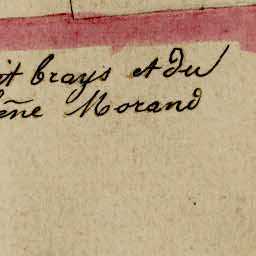 it brays et du
ene Morand